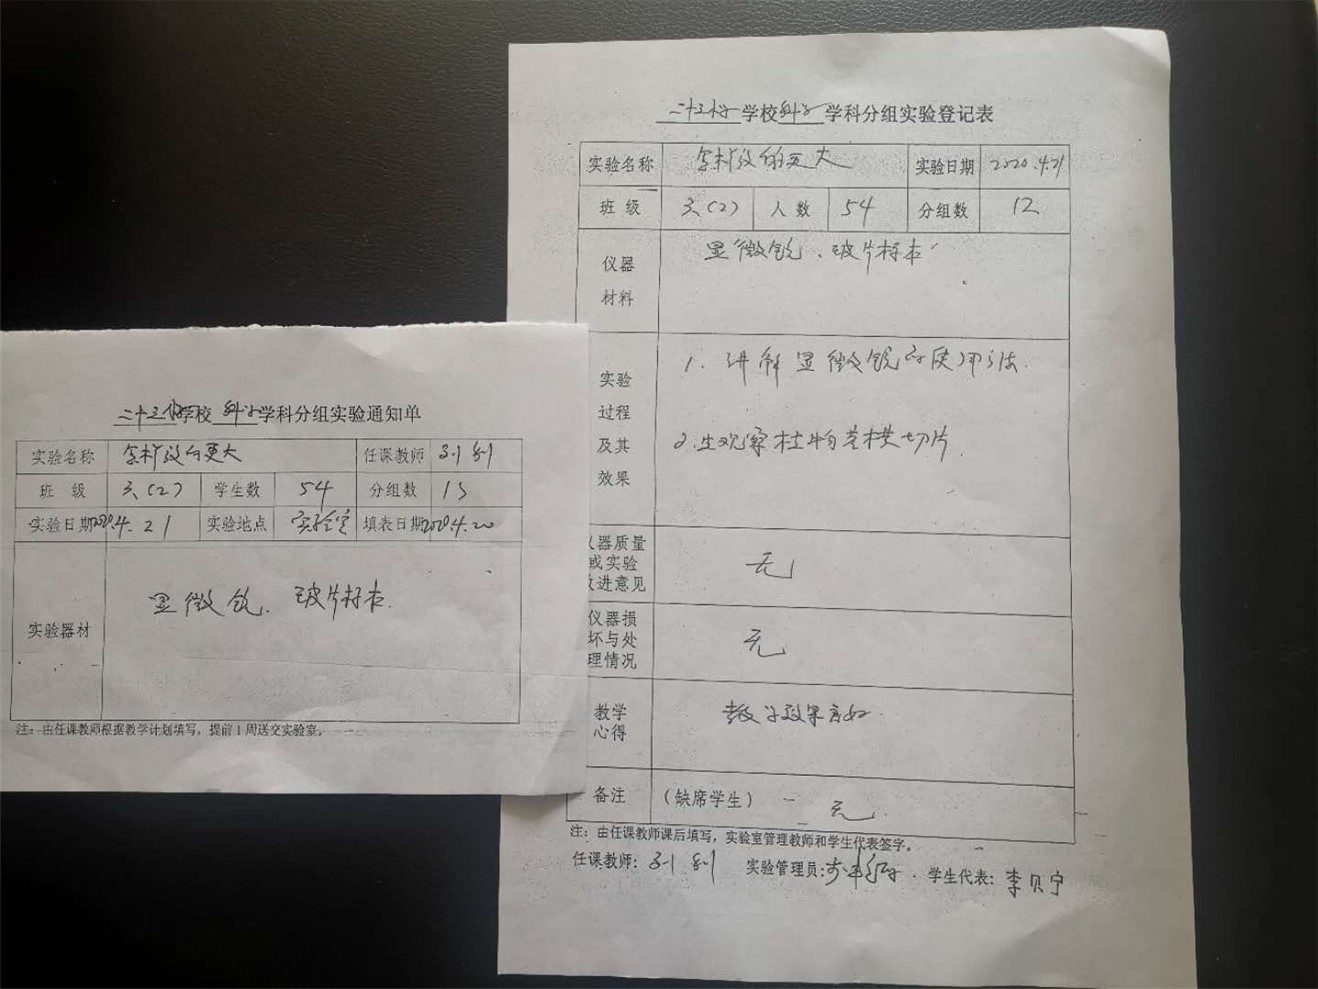 二十三校学校科学学科分组实验通知单
实验名称 任课教师
班 级 三(2) 学生数 54 分组数 13
实验日期 2020.4.21 实验地点 实验室 填表日期 2020.4.20
实验器材 显微镜、玻片标本.
注：由任课教师根据教学计划填写，提前1周送交实验室。
二十三校学校科学学科分组实验登记表
实验名称 实验日期 2020.4.21
班 级 三(2) 人 数 54 分组数 12
仪器材料 显微镜、玻片标本
实验过程及其效果
1. 讲解显微镜的使用方法.
2.生观察植物茎横切片
仪器质量
或实验
改进意见 无
仪器损
坏与处
理情况 无
教学
心得 教学效果良好.
备注 (缺席学生) 无
注：由任课教师课后填写，实验室管理教师和学生代表签字。
任课教师： 实验管理员： 学生代表：李贝宁